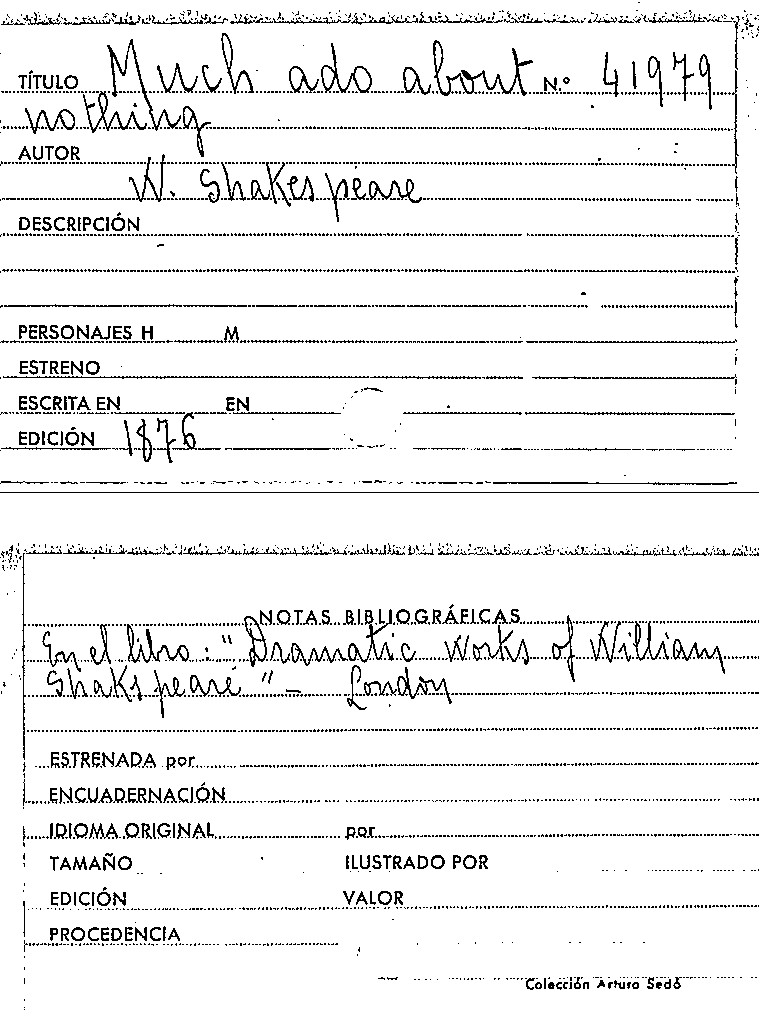 TÍTULO Much ado about N.º 41979
nothing
AUTOR
W. Shakespeare
DESCRIPCIÓN
PERSONAJES H M
ESTRENO
ESCRITA EN EN
EDICIÓN 1876
NOTAS BIBLIOGRÁFICAS
En el libro: "Dramatic Works of William
Shakspeare" - London
ESTRENADA por
ENCUADERNACIÓN
IDIOMA ORIGINAL por
TAMAÑO ILUSTRADO POR
EDICIÓN VALOR
PROCEDENCIA
Colección Arturo Sedó